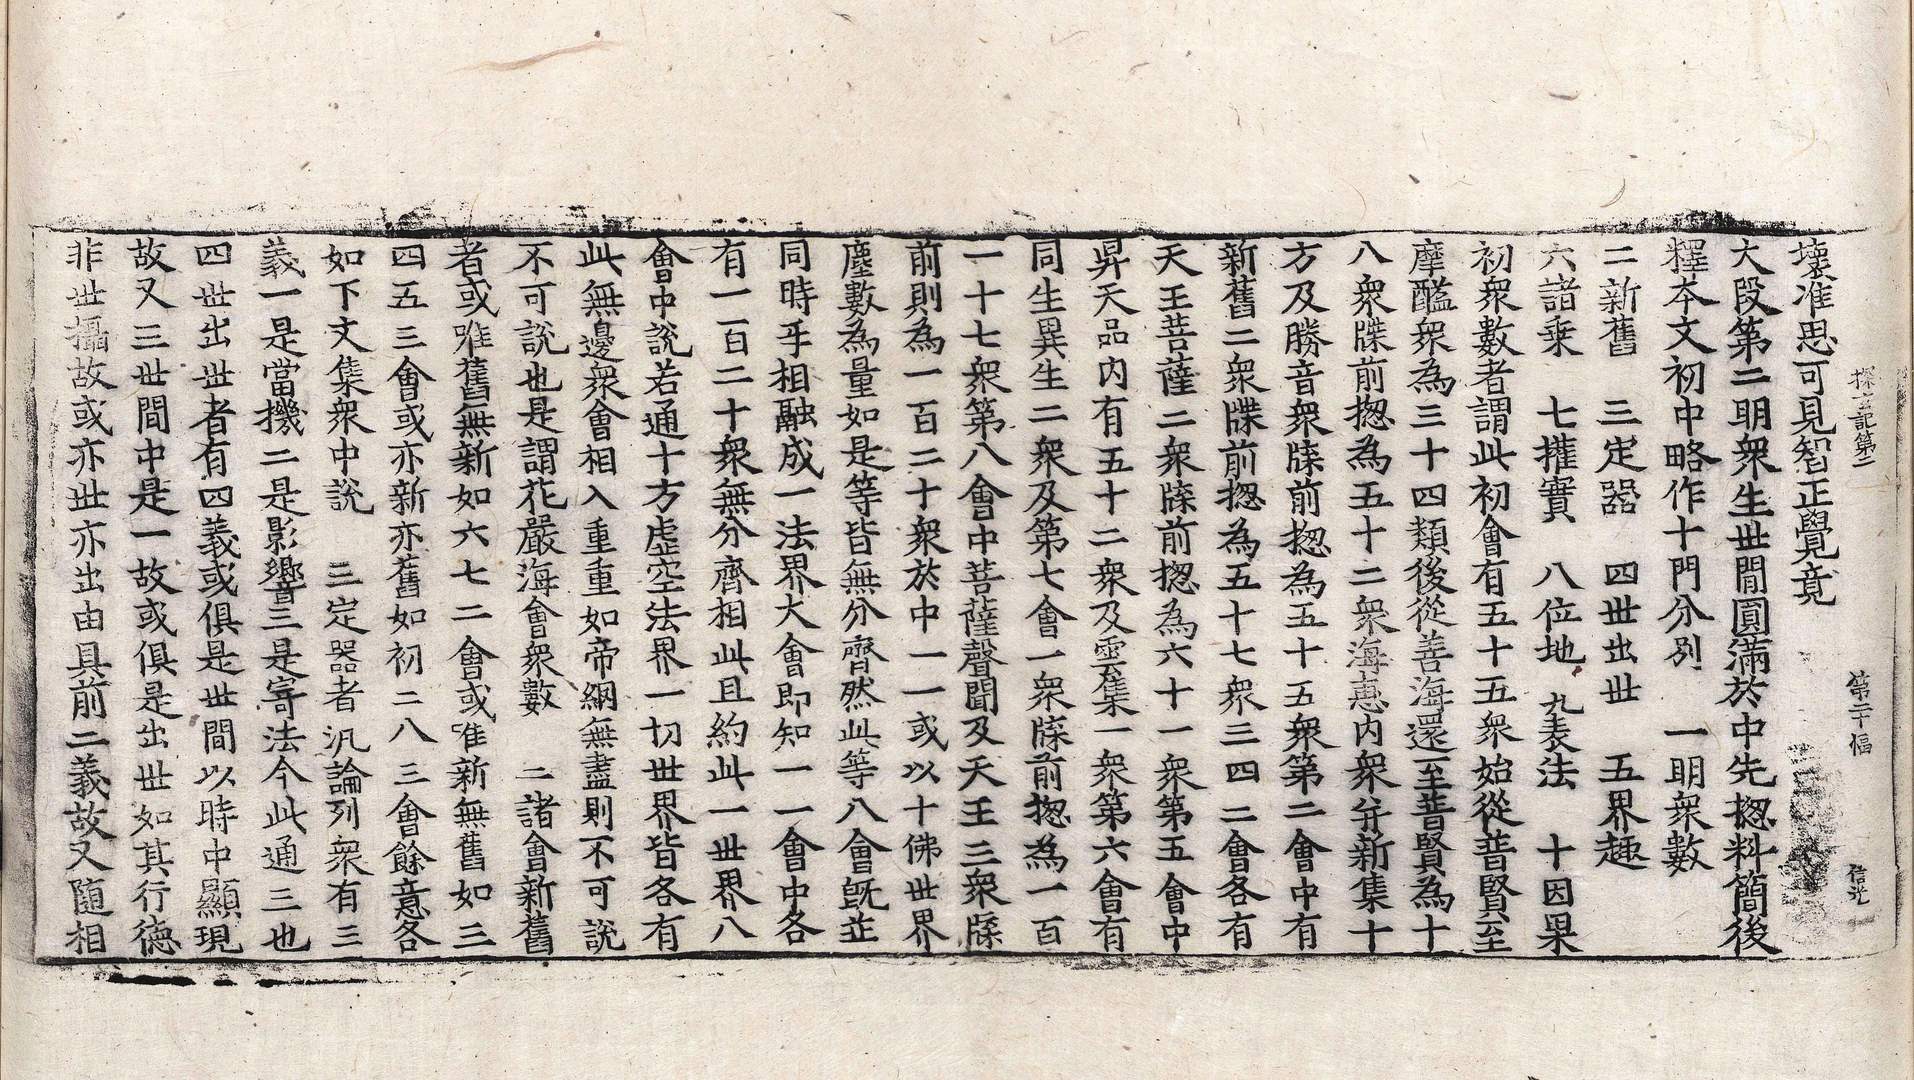 探玄記第二　第二十幅　信光
壞准思可見智正覺竟
大段第二明衆生世間圓滿於中先揔料簡後
釋本文初中略作十門分別　一明衆數
二新舊　三定器　四世出世　五界趣
六諸乗　七權實　八位地　九表法　十因果
初衆數者謂此初會有五十五衆始從普賢至
摩醯衆為三十四類後從善海還至普賢為十
八衆牒前揔為五十二衆海惠内衆并新集十
方及勝音衆牒前揔為五十五衆第二會中有
新舊二衆牒前揔為五十七衆三四二會各有
天王菩薩二衆牒前揔為六十一衆第五會中
昇天品内有五十二衆及雲集一衆第六會有
同生異生二衆及第七會一衆牒前揔為一百
一十七衆第八會中菩薩聲聞及天王三衆牒
前則為一百二十衆於中一一或以十佛世界
塵數為量如是等皆無分齊然此等八會旣並
同時乎相融成一法界大會即知一一會中各
有一百二十衆無分齊相此且約此一世界八
會中說若通十方虛空法界一切世界皆各有
此無邊衆會相入重重如帝網無盡則不可說
不可說也是謂花嚴海會衆數　二諸會新舊
者或唯舊無新如六七二會或唯新無舊如三
四五三會或亦新亦舊如初二八三會餘意各
如下文集衆中說　三定器者汎論列衆有三
義一是當機二是影響三是寄法今此通三也
四世出世者有四義或俱是世間以時中顯現
故又三世間中是一故或俱是出世如其行德
非世攝故或亦世亦出由具前二義故又隨相